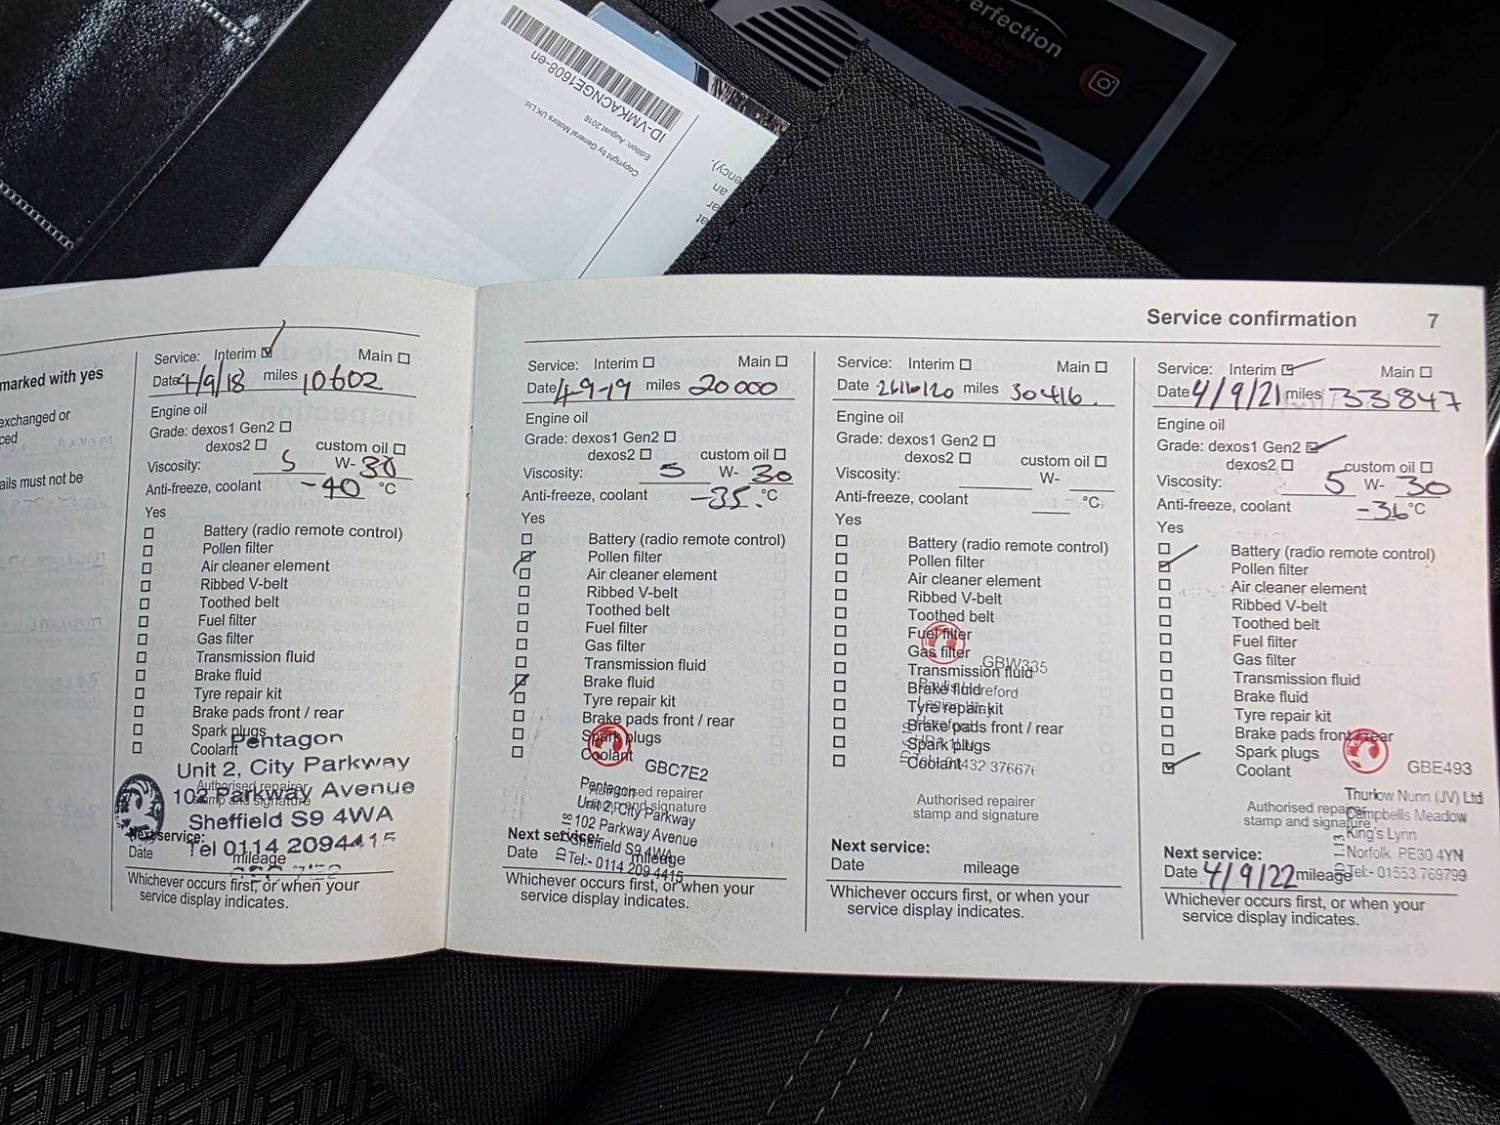 erfection
07757336092
ID-VMKACNGE1608-en
Edition: August 2016
Copyright by General Motors UK Ltd.
ency).
an
ar
at
marked with yes
exchanged or
ced
ails must not be
Service: Interim Main
Date 4/9/18 miles 10602
Engine oil
Grade: dexos1 Gen2
dexos2 custom oil
Viscosity: 5 W- 30
Anti-freeze, coolant -40 °C
Yes
Battery (radio remote control)
Pollen filter
Air cleaner element
Ribbed V-belt
Toothed belt
Fuel filter
Gas filter
Transmission fluid
Brake fluid
Tyre repair kit
Brake pads front / rear
Spark plugs
Coolant
Pentagon
Unit 2, City Parkway
102 Parkway Avenue
Sheffield S9 4WA
Tel 0114 2094415
Authorised repairer
stamp and signature
Next service:
Date mileage
Whichever occurs first, or when your
service display indicates.
Service confirmation 7
Service: Interim Main
Date 4-9-19 miles 20000
Engine oil
Grade: dexos1 Gen2
dexos2 custom oil
Viscosity: 5 W- 30
Anti-freeze, coolant -35. °C
Yes
Battery (radio remote control)
Pollen filter
Air cleaner element
Ribbed V-belt
Toothed belt
Fuel filter
Gas filter
Transmission fluid
Brake fluid
Tyre repair kit
Brake pads front / rear
Spark plugs
Coolant
GBC7E2
Pentagon
Unit 2, City Parkway
102 Parkway Avenue
Sheffield S9 4WA
Tel:- 0114 209 4415
Authorised repairer
stamp and signature
Next service:
Date mileage
Whichever occurs first, or when your
service display indicates.
Service: Interim Main
Date miles 30416.
Engine oil
Grade: dexos1 Gen2
dexos2 custom oil
Viscosity: W-
Anti-freeze, coolant °C
Yes
Battery (radio remote control)
Pollen filter
Air cleaner element
Ribbed V-belt
Toothed belt
Fuel filter
Gas filter
Transmission fluid
Brake fluid
Tyre repair kit
Brake pads front / rear
Spark plugs
Coolant
GBW335
Hereford
Authorised repairer
stamp and signature
Next service:
Date mileage
Whichever occurs first, or when your
service display indicates.
Service: Interim Main
Date 4/9/21 miles 33847
Engine oil
Grade: dexos1 Gen2
dexos2 custom oil
Viscosity: 5 W- 30
Anti-freeze, coolant -36 °C
Yes
Battery (radio remote control)
Pollen filter
Air cleaner element
Ribbed V-belt
Toothed belt
Fuel filter
Gas filter
Transmission fluid
Brake fluid
Tyre repair kit
Brake pads front / rear
Spark plugs
Coolant
GBE493
Thurlow Nunn (JV) Ltd
Campbells Meadow
King's Lynn
Norfolk PE30 4YN
Tel:- 01553 769799
Authorised repairer
stamp and signature
Next service:
Date 4/9/22 mileage
Whichever occurs first, or when your
service display indicates.